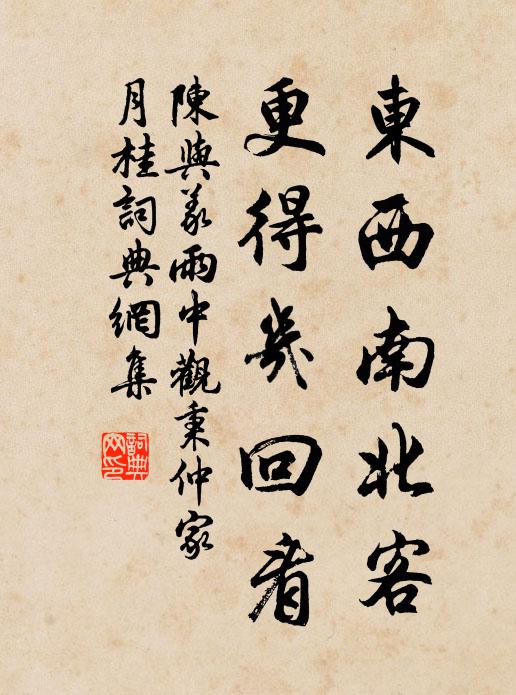 東西南北客
更得幾回看
陳與義雨中觀秉仲家
月桂詞典網集
詞典網印